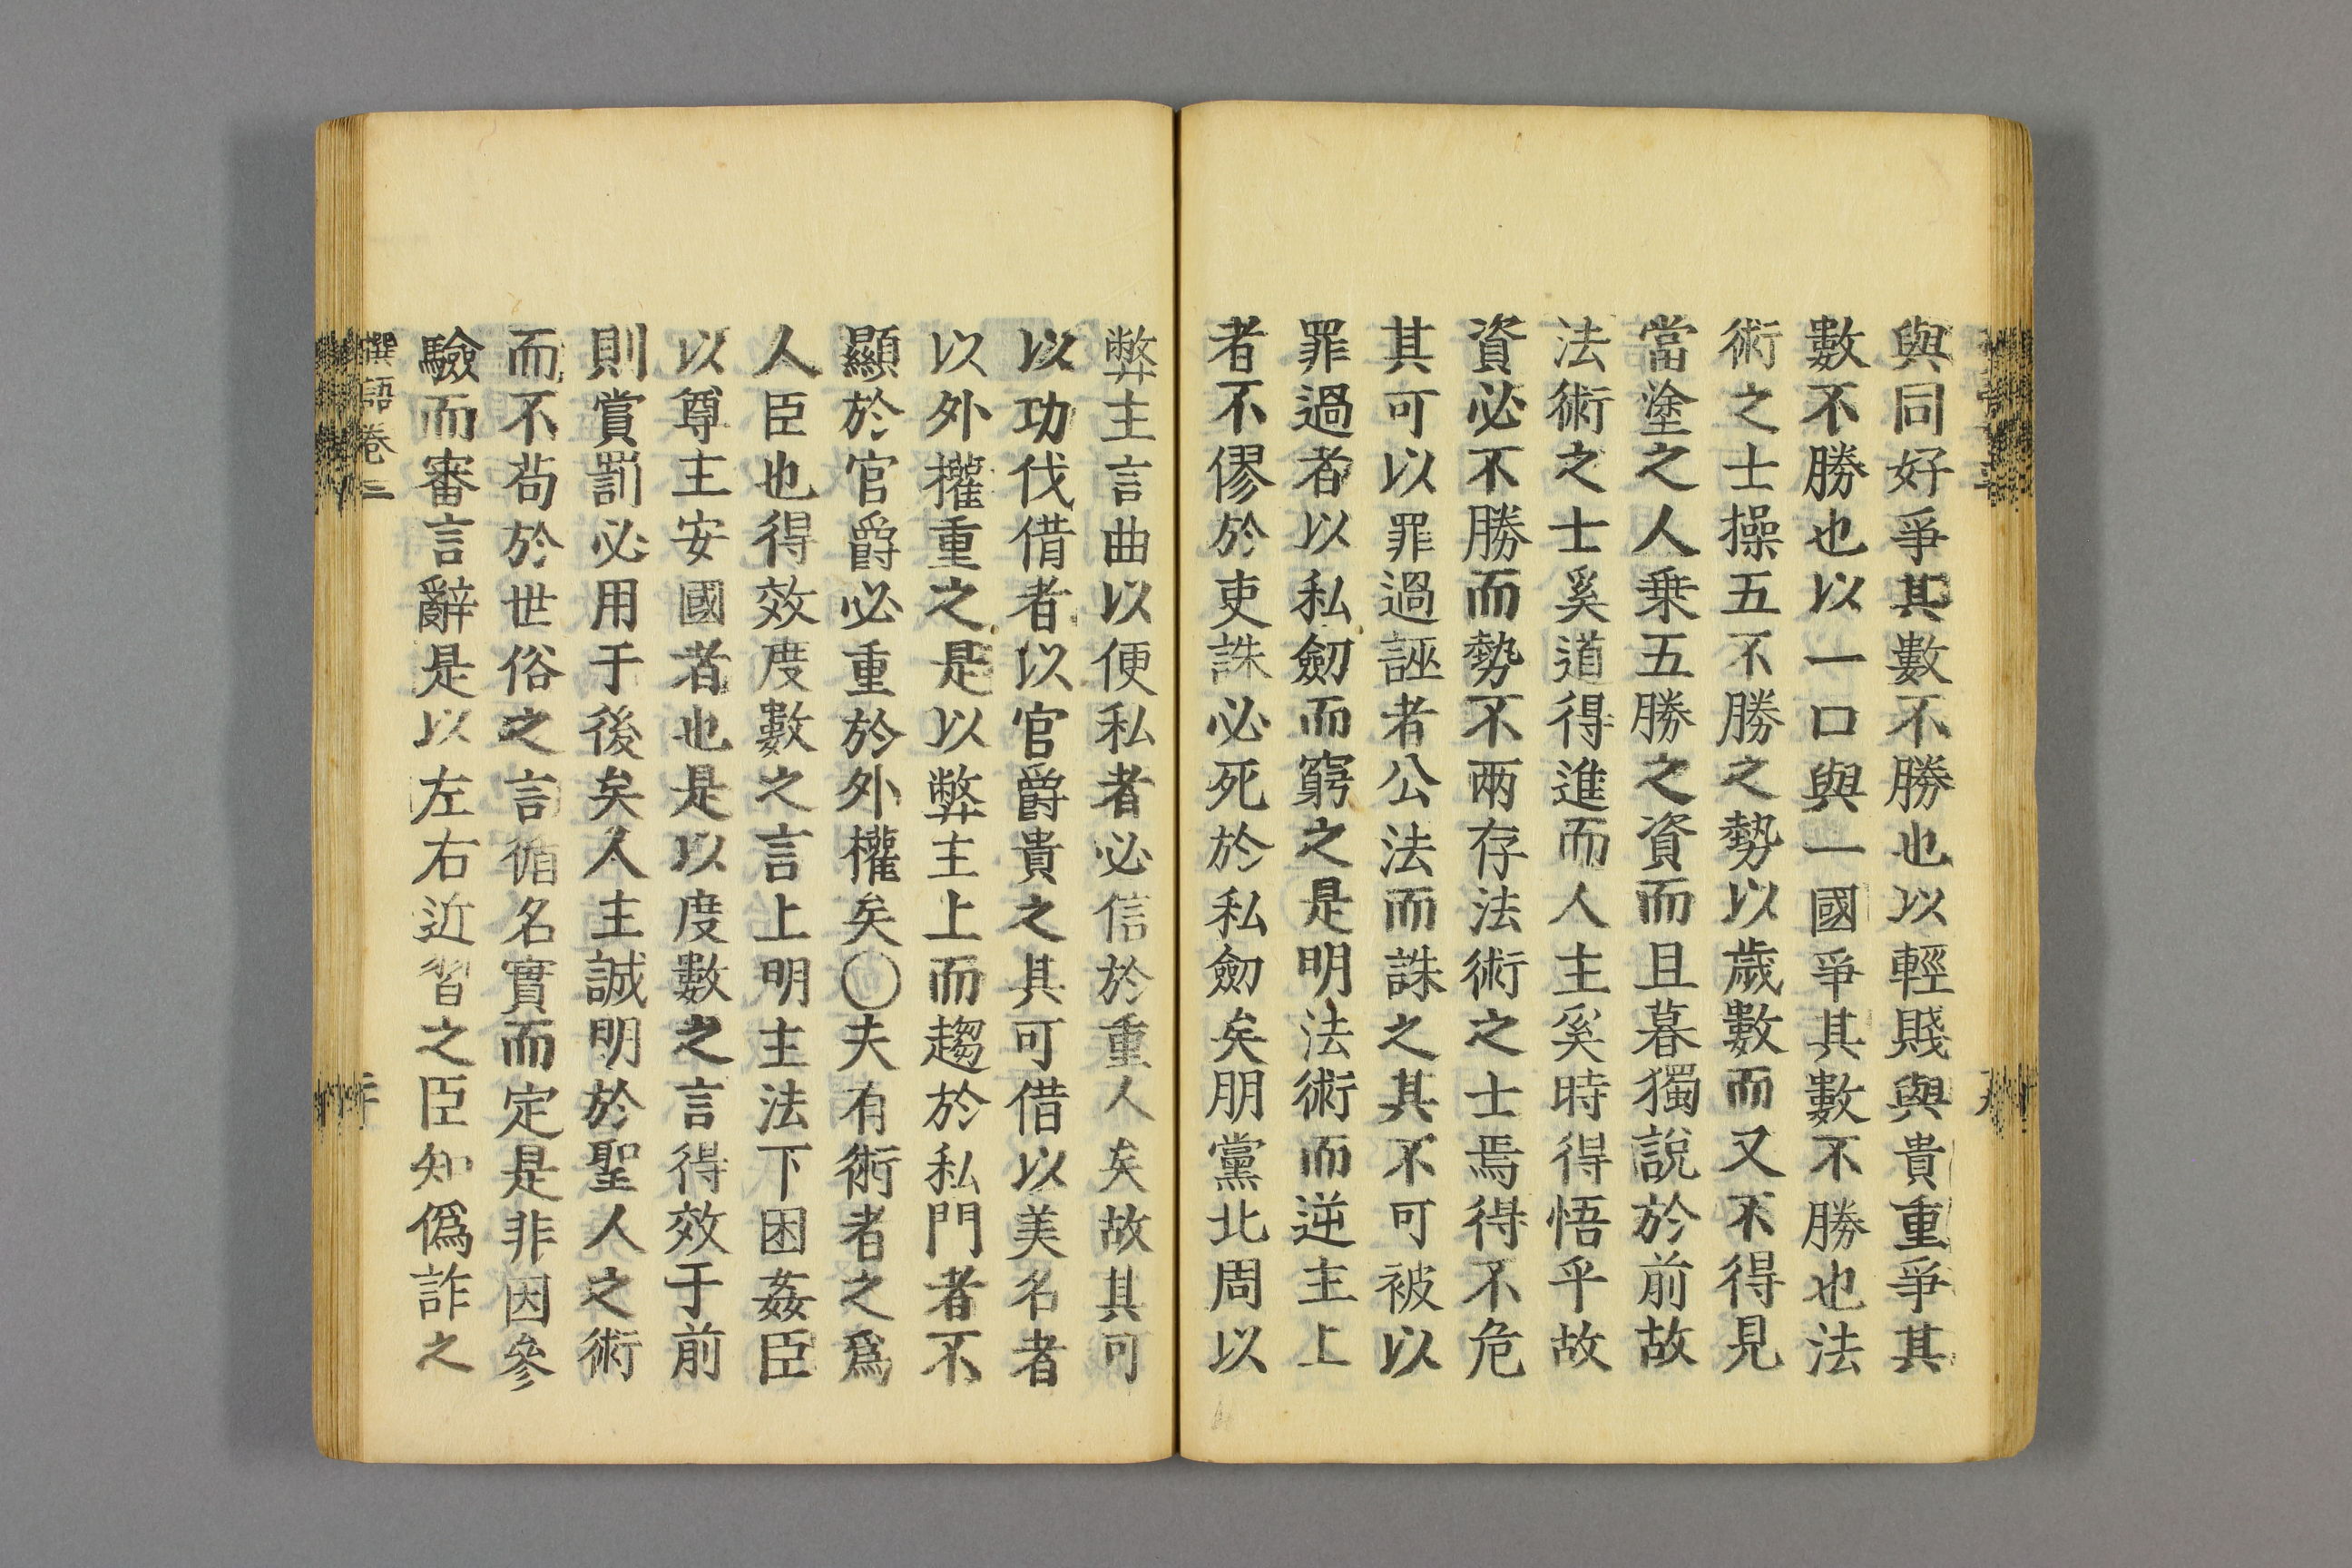 與同好爭其數不勝也以輕賤與貴重爭其
數不勝也以一口與一國爭其數不勝也法
術之士操五不勝之勢以歲數而又不得見
當塗之人乗五勝之資而且暮獨說於前故
法術之士奚道得進而人主奚時得悟乎故
資必不勝而勢不兩存法術之士焉得不危
其可以罪過誣者公法而誅之其不可被以
罪過者以私劒而窮之是明法術而逆主上
者不僇於吏誅必死於私劒矣朋黨北周以
弊主言曲以便私者必信於重人矣故其可
以功伐借者以官爵貴之其可借以美名者
以外權重之是以弊主上而趨於私門者不
顯於官爵必重於外權矣○夫有術者之爲
人臣也得效度數之言上明主法下困姦臣
以尊主安國者也是以度數之言得效于前
則賞罰必用于後矣人主誠明於聖人之術
而不茍於世俗之言循名實而定是非因參
驗而審言辭是以左右近習之臣知僞詐之
撰語卷三